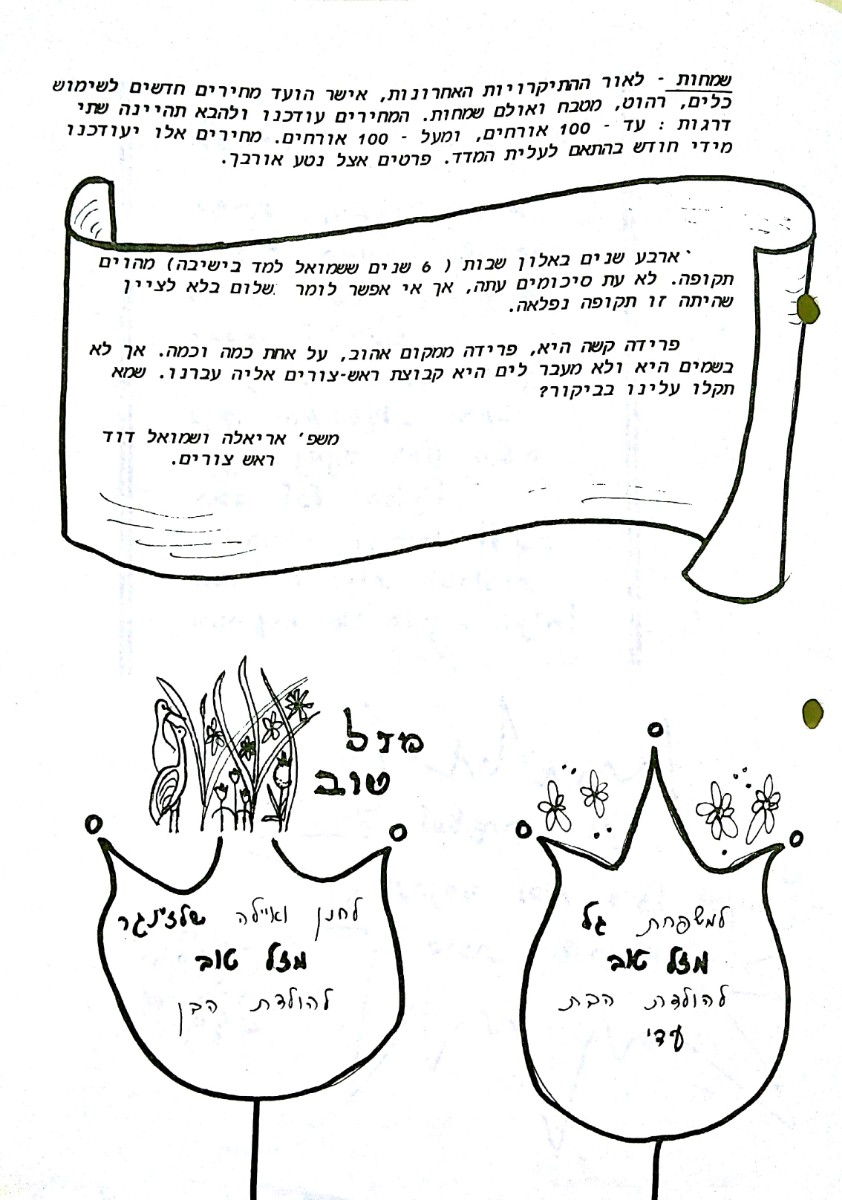 שמחות - לאור ההתיקרויות האחרונות, אישר הועד מחירים חדשים לשימוש
כלים, רהוט, מטבח ואולם שמחות. המחירים עודכנו ולהבא תהיינה שתי
דרגות : עד - 100 אורחים, ומעל - 100 אורחים. מחירים אלו יעודכנו
מידי חודש בהתאם לעלית המדד. פרטים אצל נטע אורבך.
ארבע שנים באלון שבות ( 6 שנים ששמואל למד בישיבה) מהוים
תקופה. לא עת סיכומים עתה, אך אי אפשר לומר שלום בלא לציין
שהיתה זו תקופה נפלאה.
פרידה קשה היא, פרידה ממקום אהוב, על אחת כמה וכמה. אך לא
בשמים היא ולא מעבר לים היא קבוצת ראש-צורים אליה עברנו. שמא
תקלו עלינו בביקור?
משפ' אריאלה ושמואל דוד
ראש צורים.
מזל
טוב
לחנן ואיילה שלזינגר
מזל טוב
להולדת הבן
למשפחת גל
מזל טוב
להולדת הבת
עדי